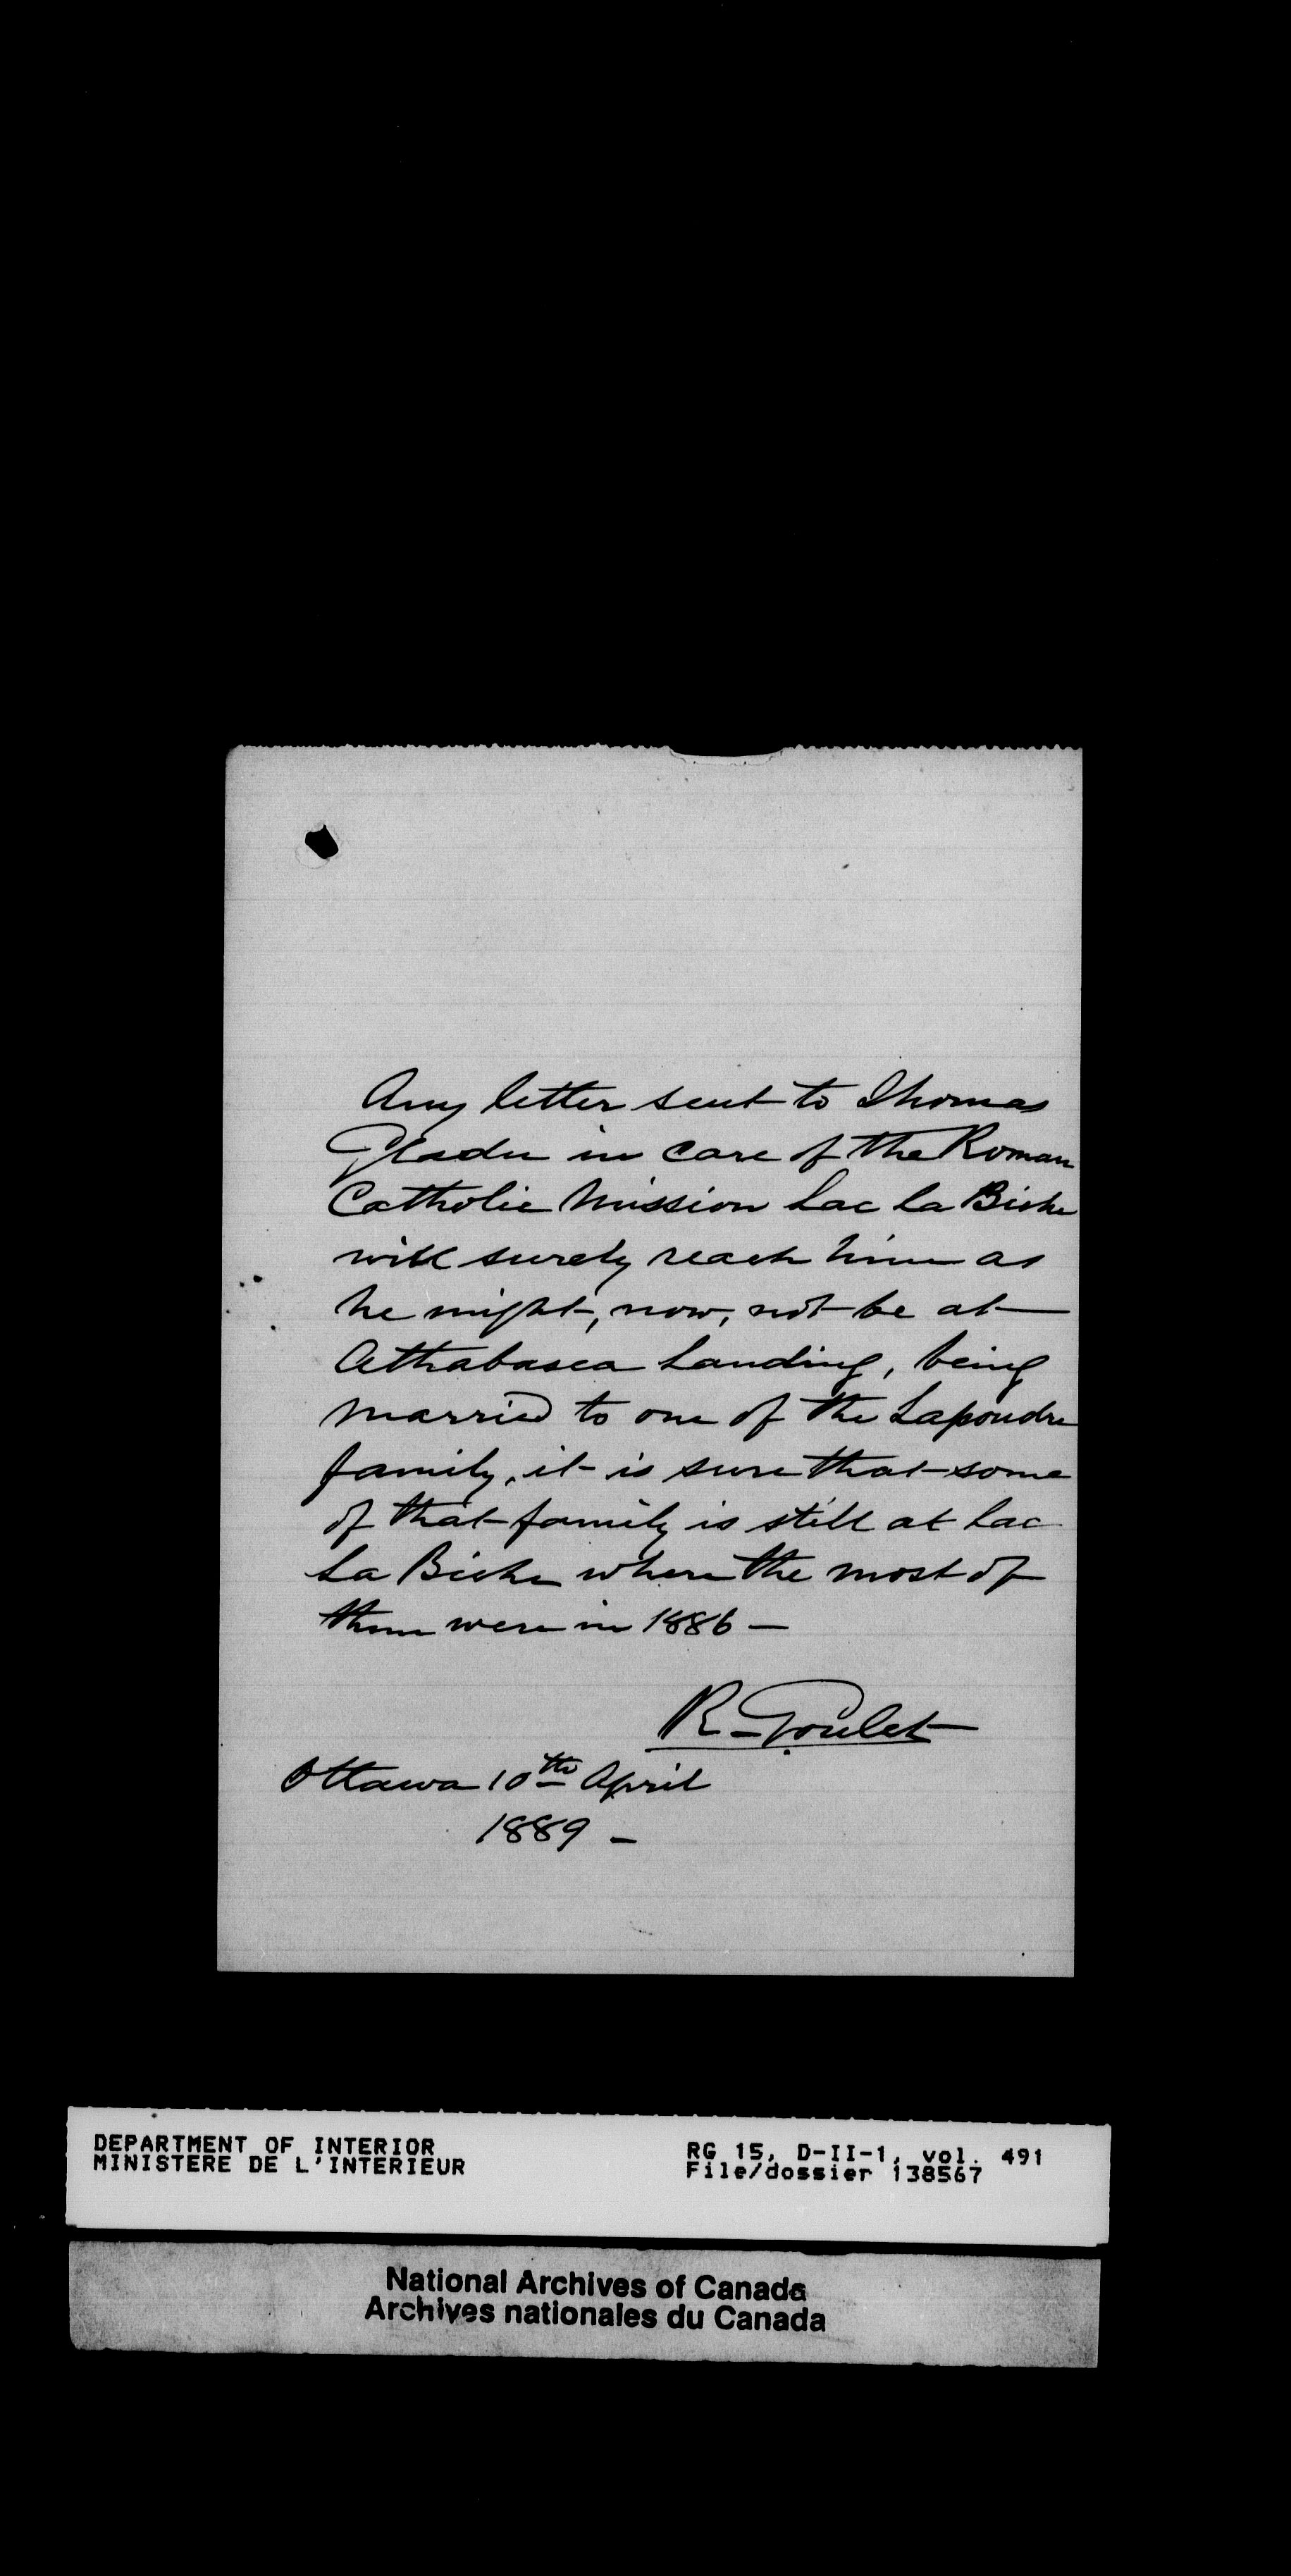 Any letter sent to Thomas
Gladu in care of the Roman
Catholic Mission Lac la Biche
will surely reach him as
he might, now, not be at
Athabasca Landing, being
married to one of the Lapoudre
family, it is sure that some
of that family is still at Lac
La Biche where the most of
them were in 1886 —
R. Goulet
Ottawa 10th April
1889 —
DEPARTMENT OF INTERIOR
MINISTERE DE L'INTERIEUR
RG 15, D-II-1, vol. 491
File/dossier 138567
National Archives of Canada
Archives nationales du Canada